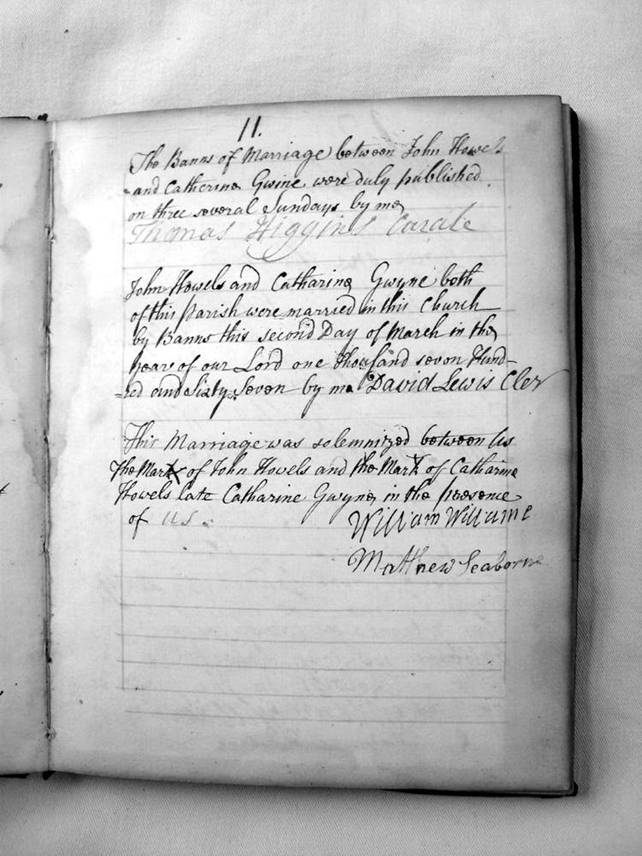 11.
The Banns of Marriage between John Howels
and Catherine Gwine were duly published
on three several Sundays by me
Thomas Higgins Curate
John Howels and Catharine Gwyne both
of this Parish were married in this Church
by Banns this second Day of March in the
year of our Lord one thousand seven Hund-
=red and Sixty Seven by me David Lewis Cler
This Marriage was solemnized between Us
the Mark X of John Howels and the Mark X of Catharine
Howels late Catharine Gwyne in the presence
of us.
William Williams
Matthew Seaborne